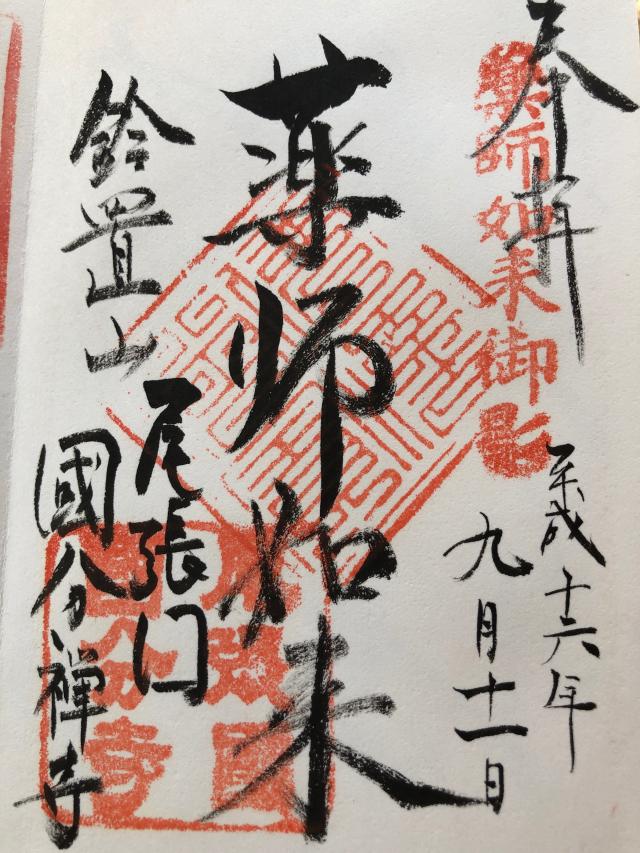 奉拝
薬師如来御影
平成十六年
九月十一日
薬師如来
鈴置山
尾張
國分禅寺
國分寺